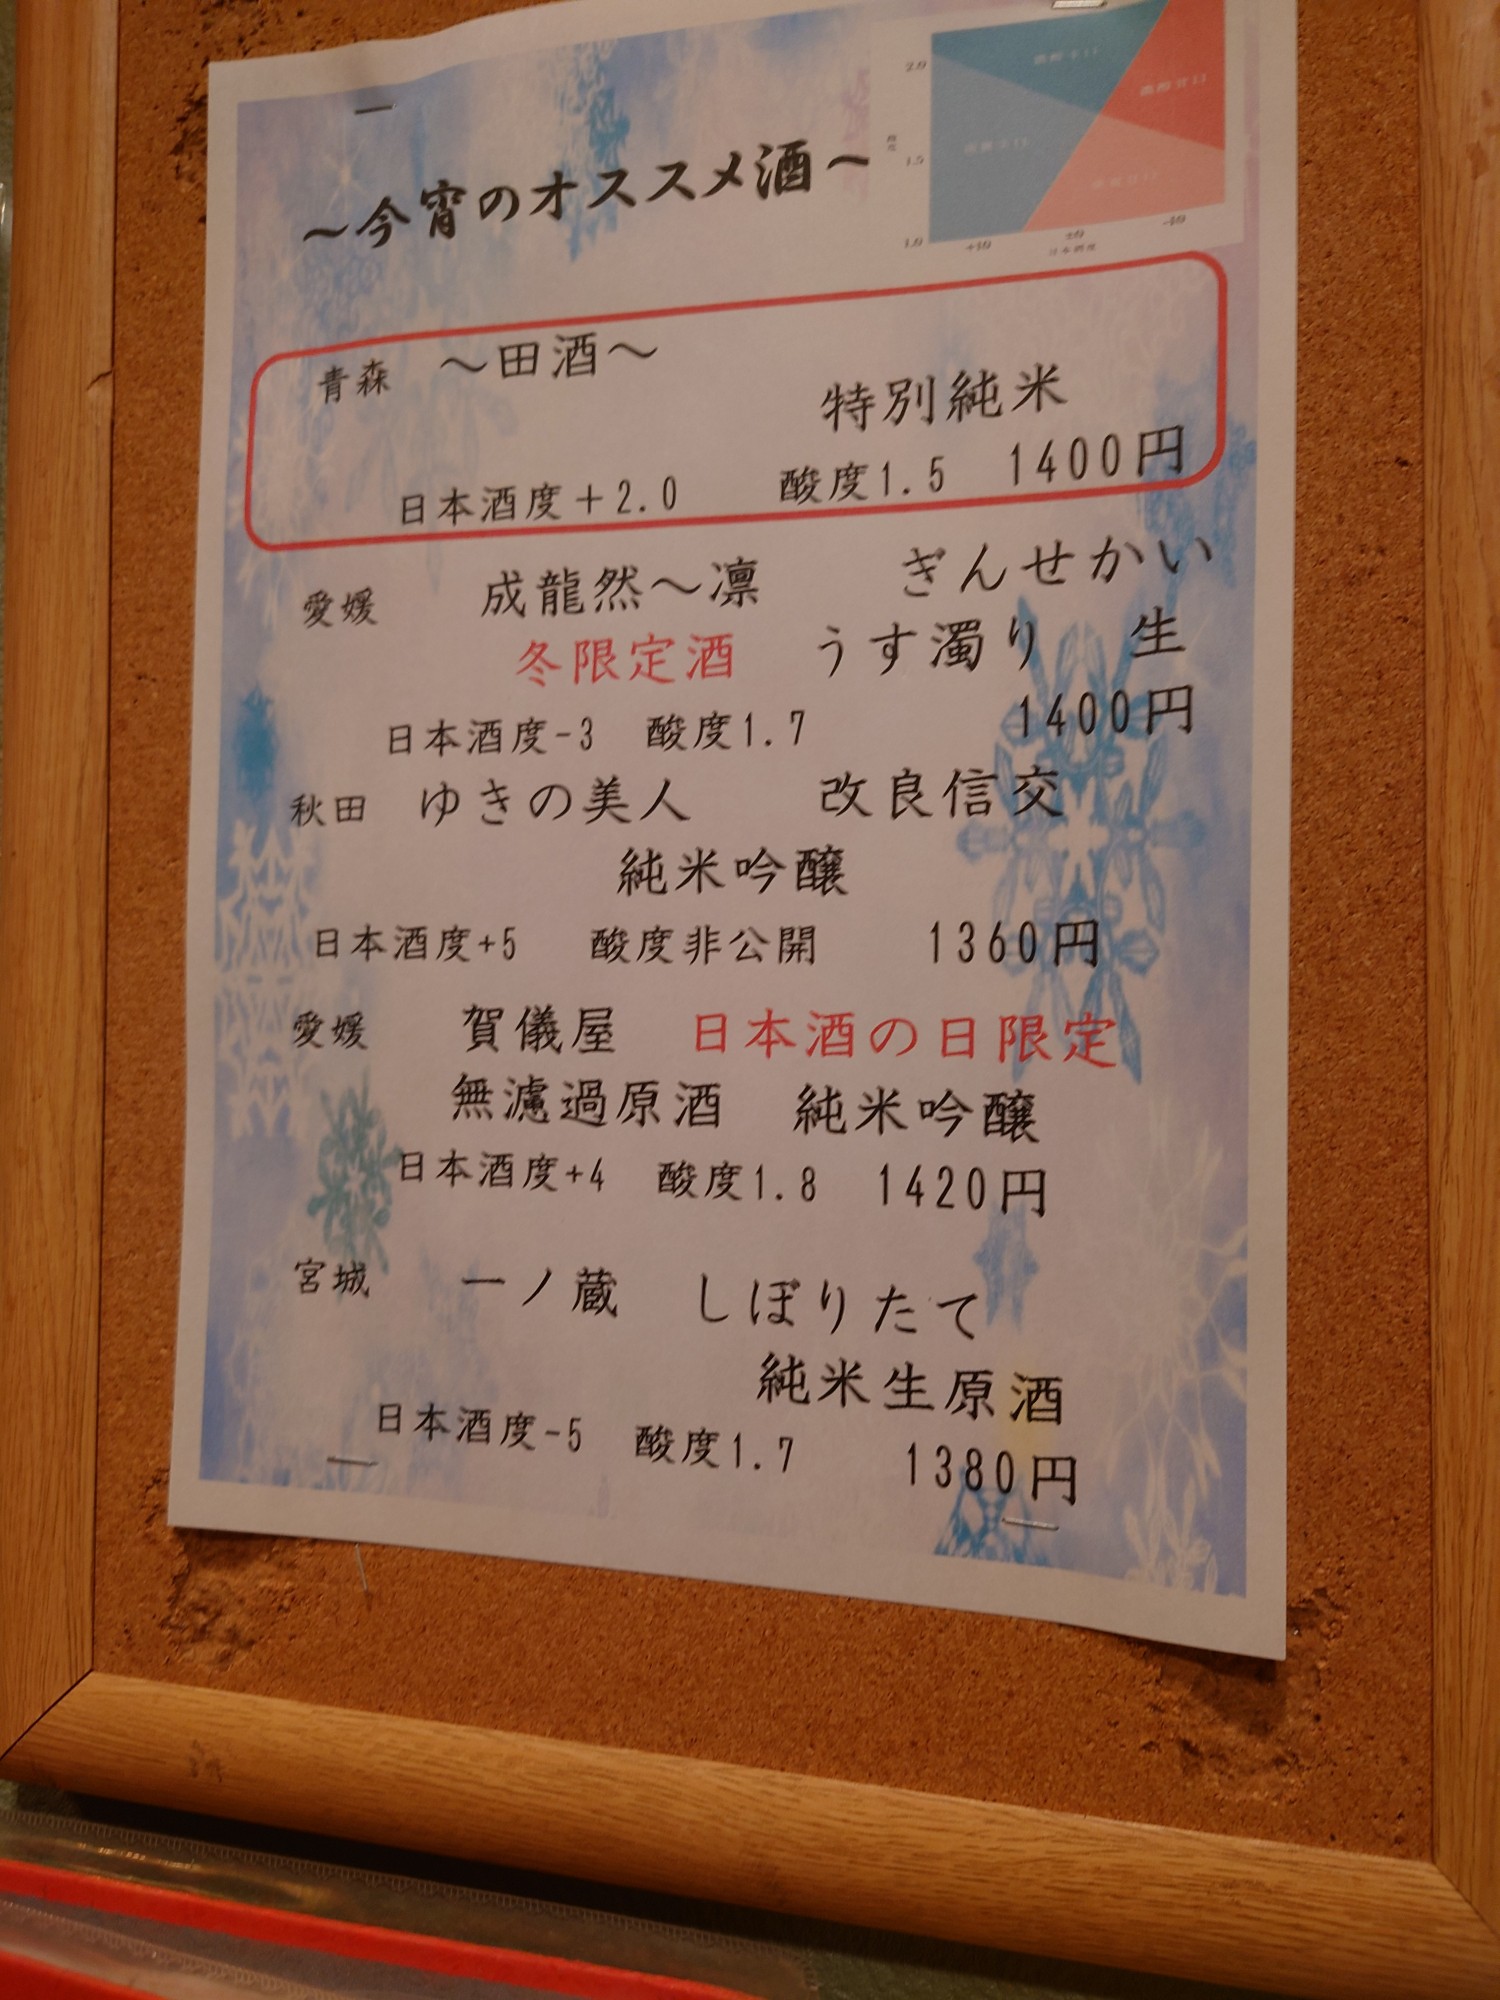 ~今宵のオススメ酒~
2.0
1.5
1.0
+10 ±0 -10
日本酒度
青森 ~田酒~
特別純米
日本酒度+2.0 酸度1.5 1400円
愛媛 成龍然~凛 ぎんせかい
冬限定酒 うす濁り 生
日本酒度-3 酸度1.7 1400円
秋田 ゆきの美人 改良信交
純米吟醸
日本酒度+5 酸度非公開 1360円
愛媛 賀儀屋 日本酒の日限定
無濾過原酒 純米吟醸
日本酒度+4 酸度1.8 1420円
宮城 一ノ蔵 しぼりたて
純米生原酒
日本酒度-5 酸度1.7 1380円